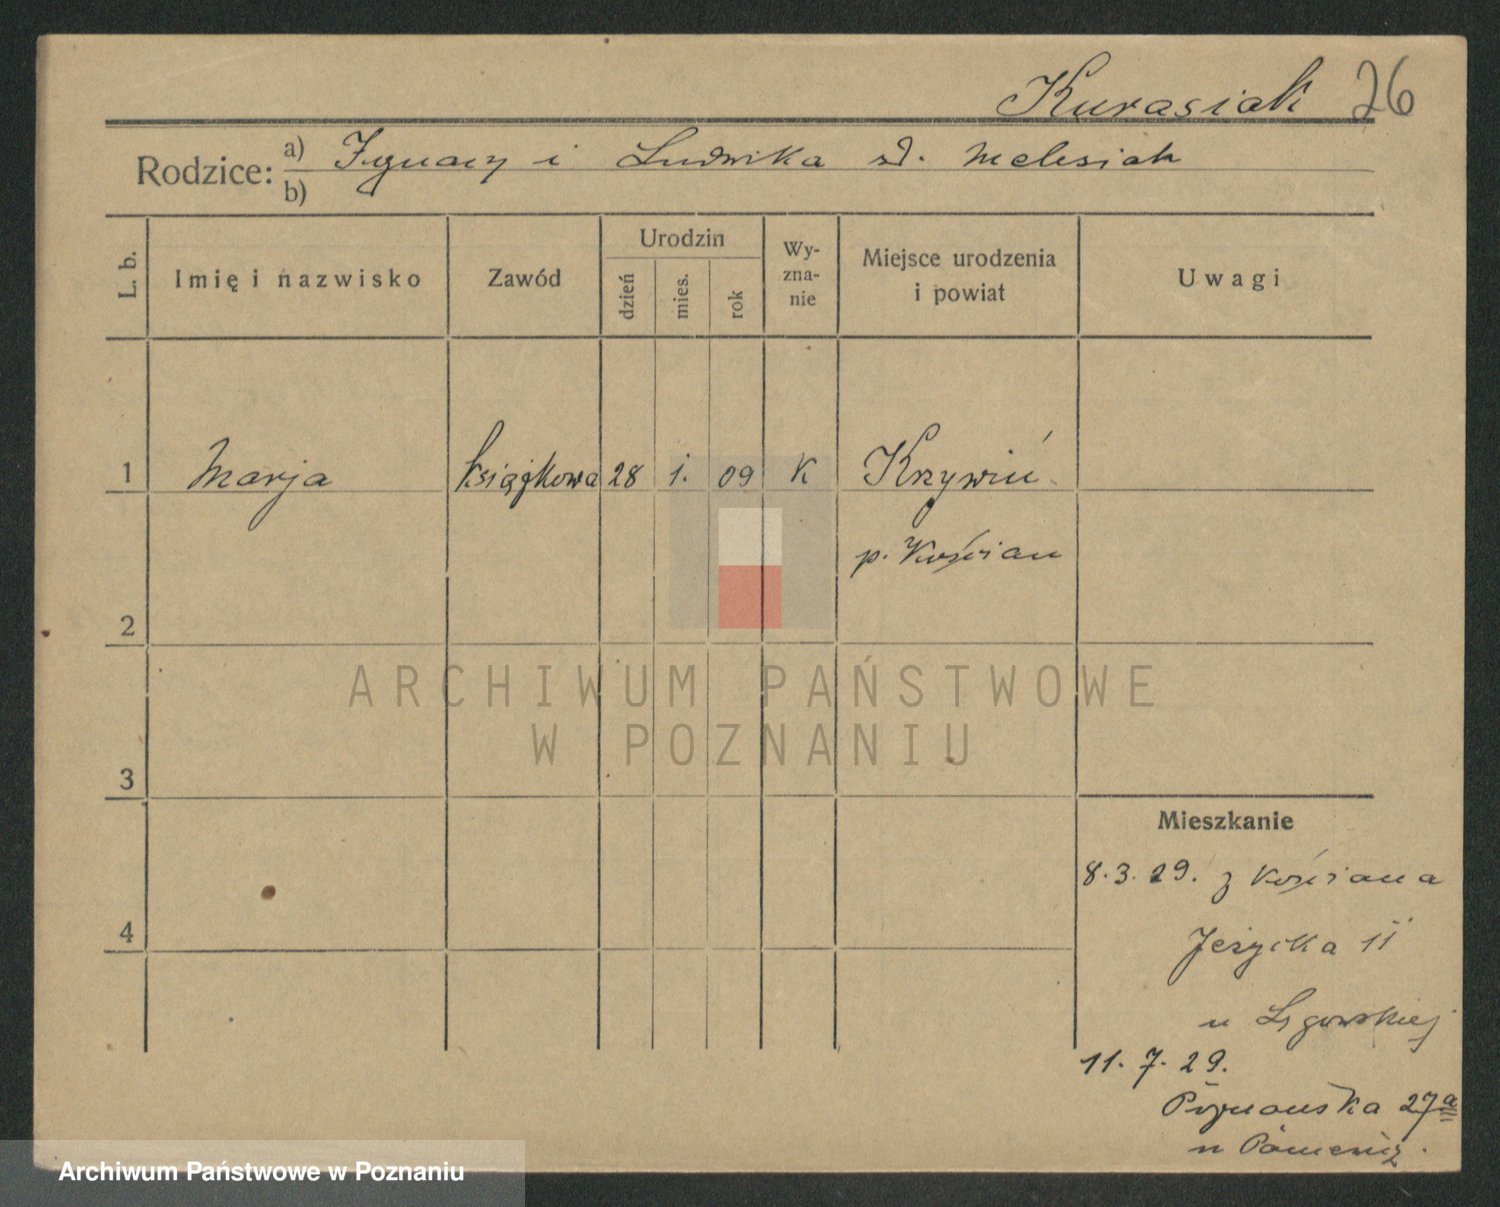 Kurasiak 26
Rodzice: a) Ignacy i Ludwika d. Melesiak
b)
L. b. Imię i nazwisko Zawód Urodzin dzień mies. rok Wy-zna-nie Miejsce urodzenia i powiat Uwagi
1 Marja książkowa 28 1. 09 K Krzywiń
p. Kościan
2
ARCHIWUM PAŃSTWOWE
W POZNANIU
3
Mieszkanie
8.3.29. z Kościana
4
Jeżycka 11
u Ligowskiej
11. 7. 29.
Poznańska 27a
u
Archiwum Państwowe w Poznaniu